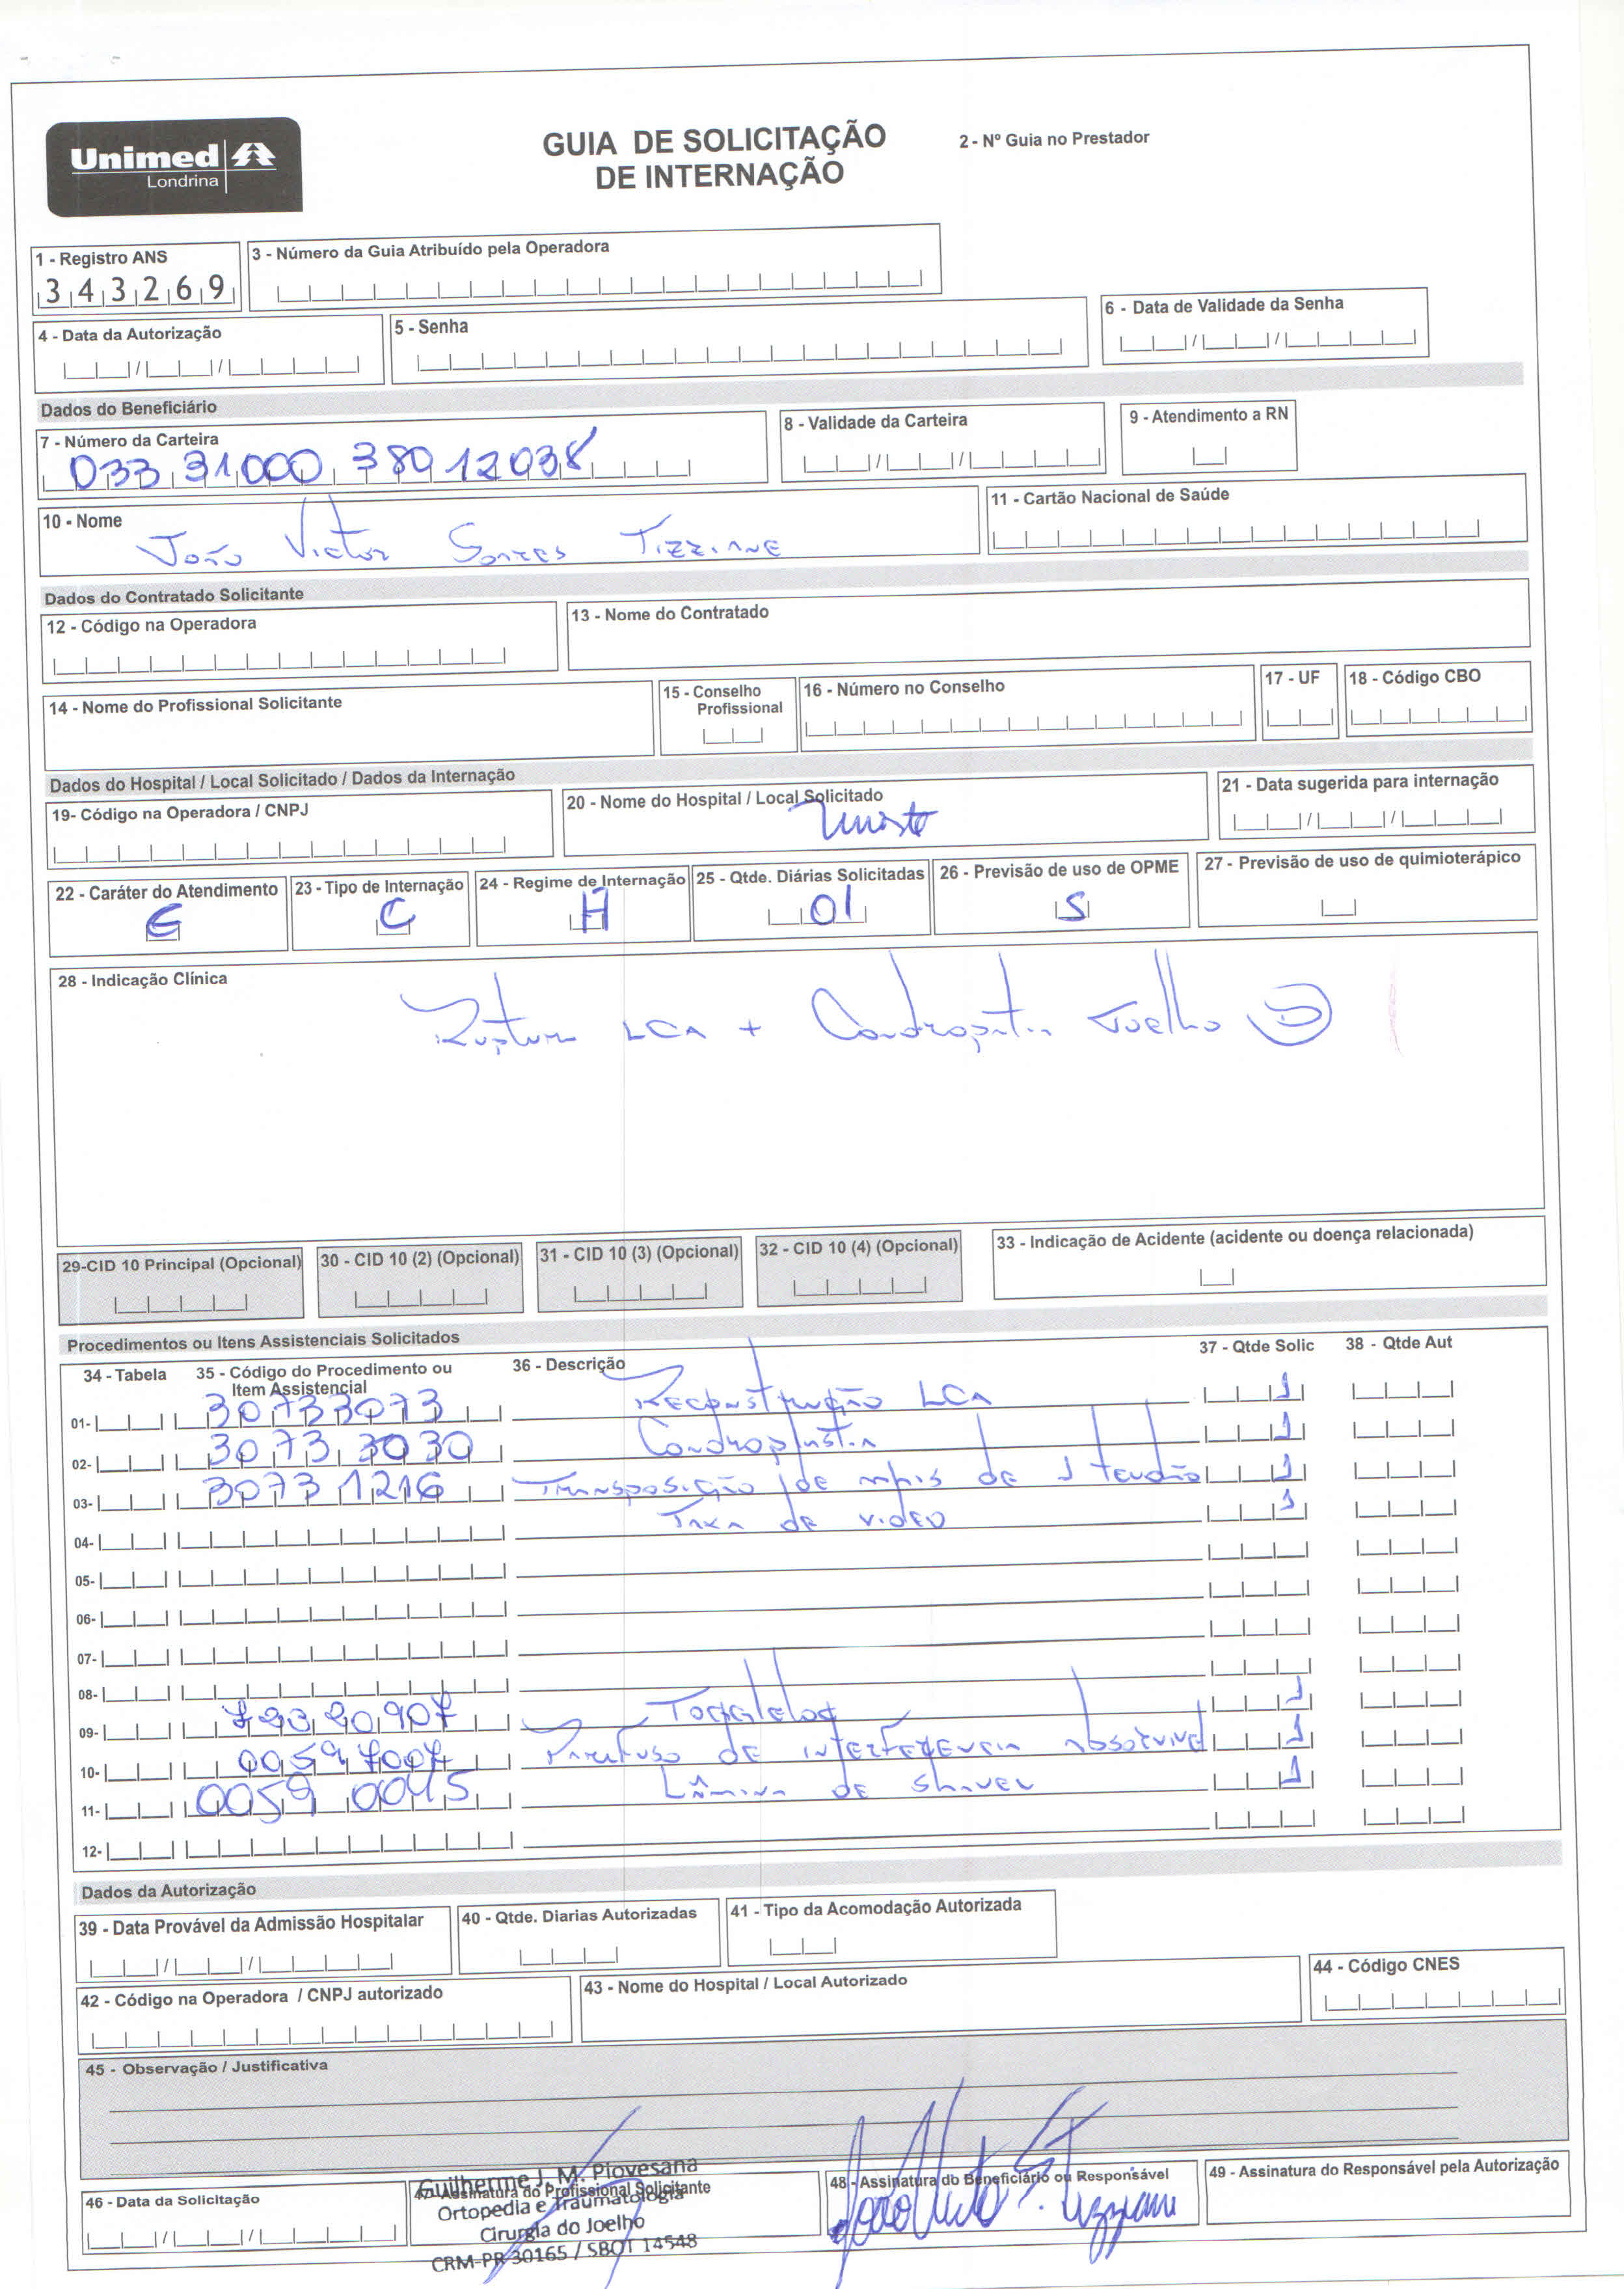 Unimed
Londrina
GUIA DE SOLICITAÇÃO
DE INTERNAÇÃO
2 - Nº Guia no Prestador
1 - Registro ANS
343269
3 - Número da Guia Atribuído pela Operadora
4 - Data da Autorização
5 - Senha
6 - Data de Validade da Senha
Dados do Beneficiário
7 - Número da Carteira
033 31000 380 12038
8 - Validade da Carteira
9 - Atendimento a RN
10 - Nome
João Victor Soares
11 - Cartão Nacional de Saúde
Dados do Contratado Solicitante
12 - Código na Operadora
13 - Nome do Contratado
14 - Nome do Profissional Solicitante
15 - Conselho
Profissional
16 - Número no Conselho
17 - UF
18 - Código CBO
Dados do Hospital / Local Solicitado / Dados da Internação
19- Código na Operadora / CNPJ
20 - Nome do Hospital / Local Solicitado
21 - Data sugerida para internação
22 - Caráter do Atendimento
E
23 - Tipo de Internação
C
24 - Regime de Internação
H
25 - Qtde. Diárias Solicitadas
01
26 - Previsão de uso de OPME
S
27 - Previsão de uso de quimioterápico
28 - Indicação Clínica
Ruptura LCA + Condropatia Joelho D
29-CID 10 Principal (Opcional)
30 - CID 10 (2) (Opcional)
31 - CID 10 (3) (Opcional)
32 - CID 10 (4) (Opcional)
33 - Indicação de Acidente (acidente ou doença relacionada)
Procedimentos ou Itens Assistenciais Solicitados
34 - Tabela
35 - Código do Procedimento ou
Item Assistencial
36 - Descrição
37 - Qtde Solic
38 - Qtde Aut
01- 30733073 Reconstrução LCA 1
02- 30733030 Condroplastia 1
03- 30731216 Transposição de mais de 1 tendão 1
04- Taxa de video 1
05-
06-
07-
08-
09- 79320907 Togglelog 1
10- 00597007 Parafuso de interferência absorvivel 1
11- 00590045 Lâmina de shaver 1
12-
Dados da Autorização
39 - Data Provável da Admissão Hospitalar
40 - Qtde. Diarias Autorizadas
41 - Tipo da Acomodação Autorizada
42 - Código na Operadora / CNPJ autorizado
43 - Nome do Hospital / Local Autorizado
44 - Código CNES
45 - Observação / Justificativa
46 - Data da Solicitação
47 - Assinatura do Profissional Solicitante
Guilherme J. M. Piovesana
Ortopedia e Traumatologia
Cirurgia do Joelho
CRM-PR 30165 / SBOT 14548
48 - Assinatura do Beneficiário ou Responsável
49 - Assinatura do Responsável pela Autorização